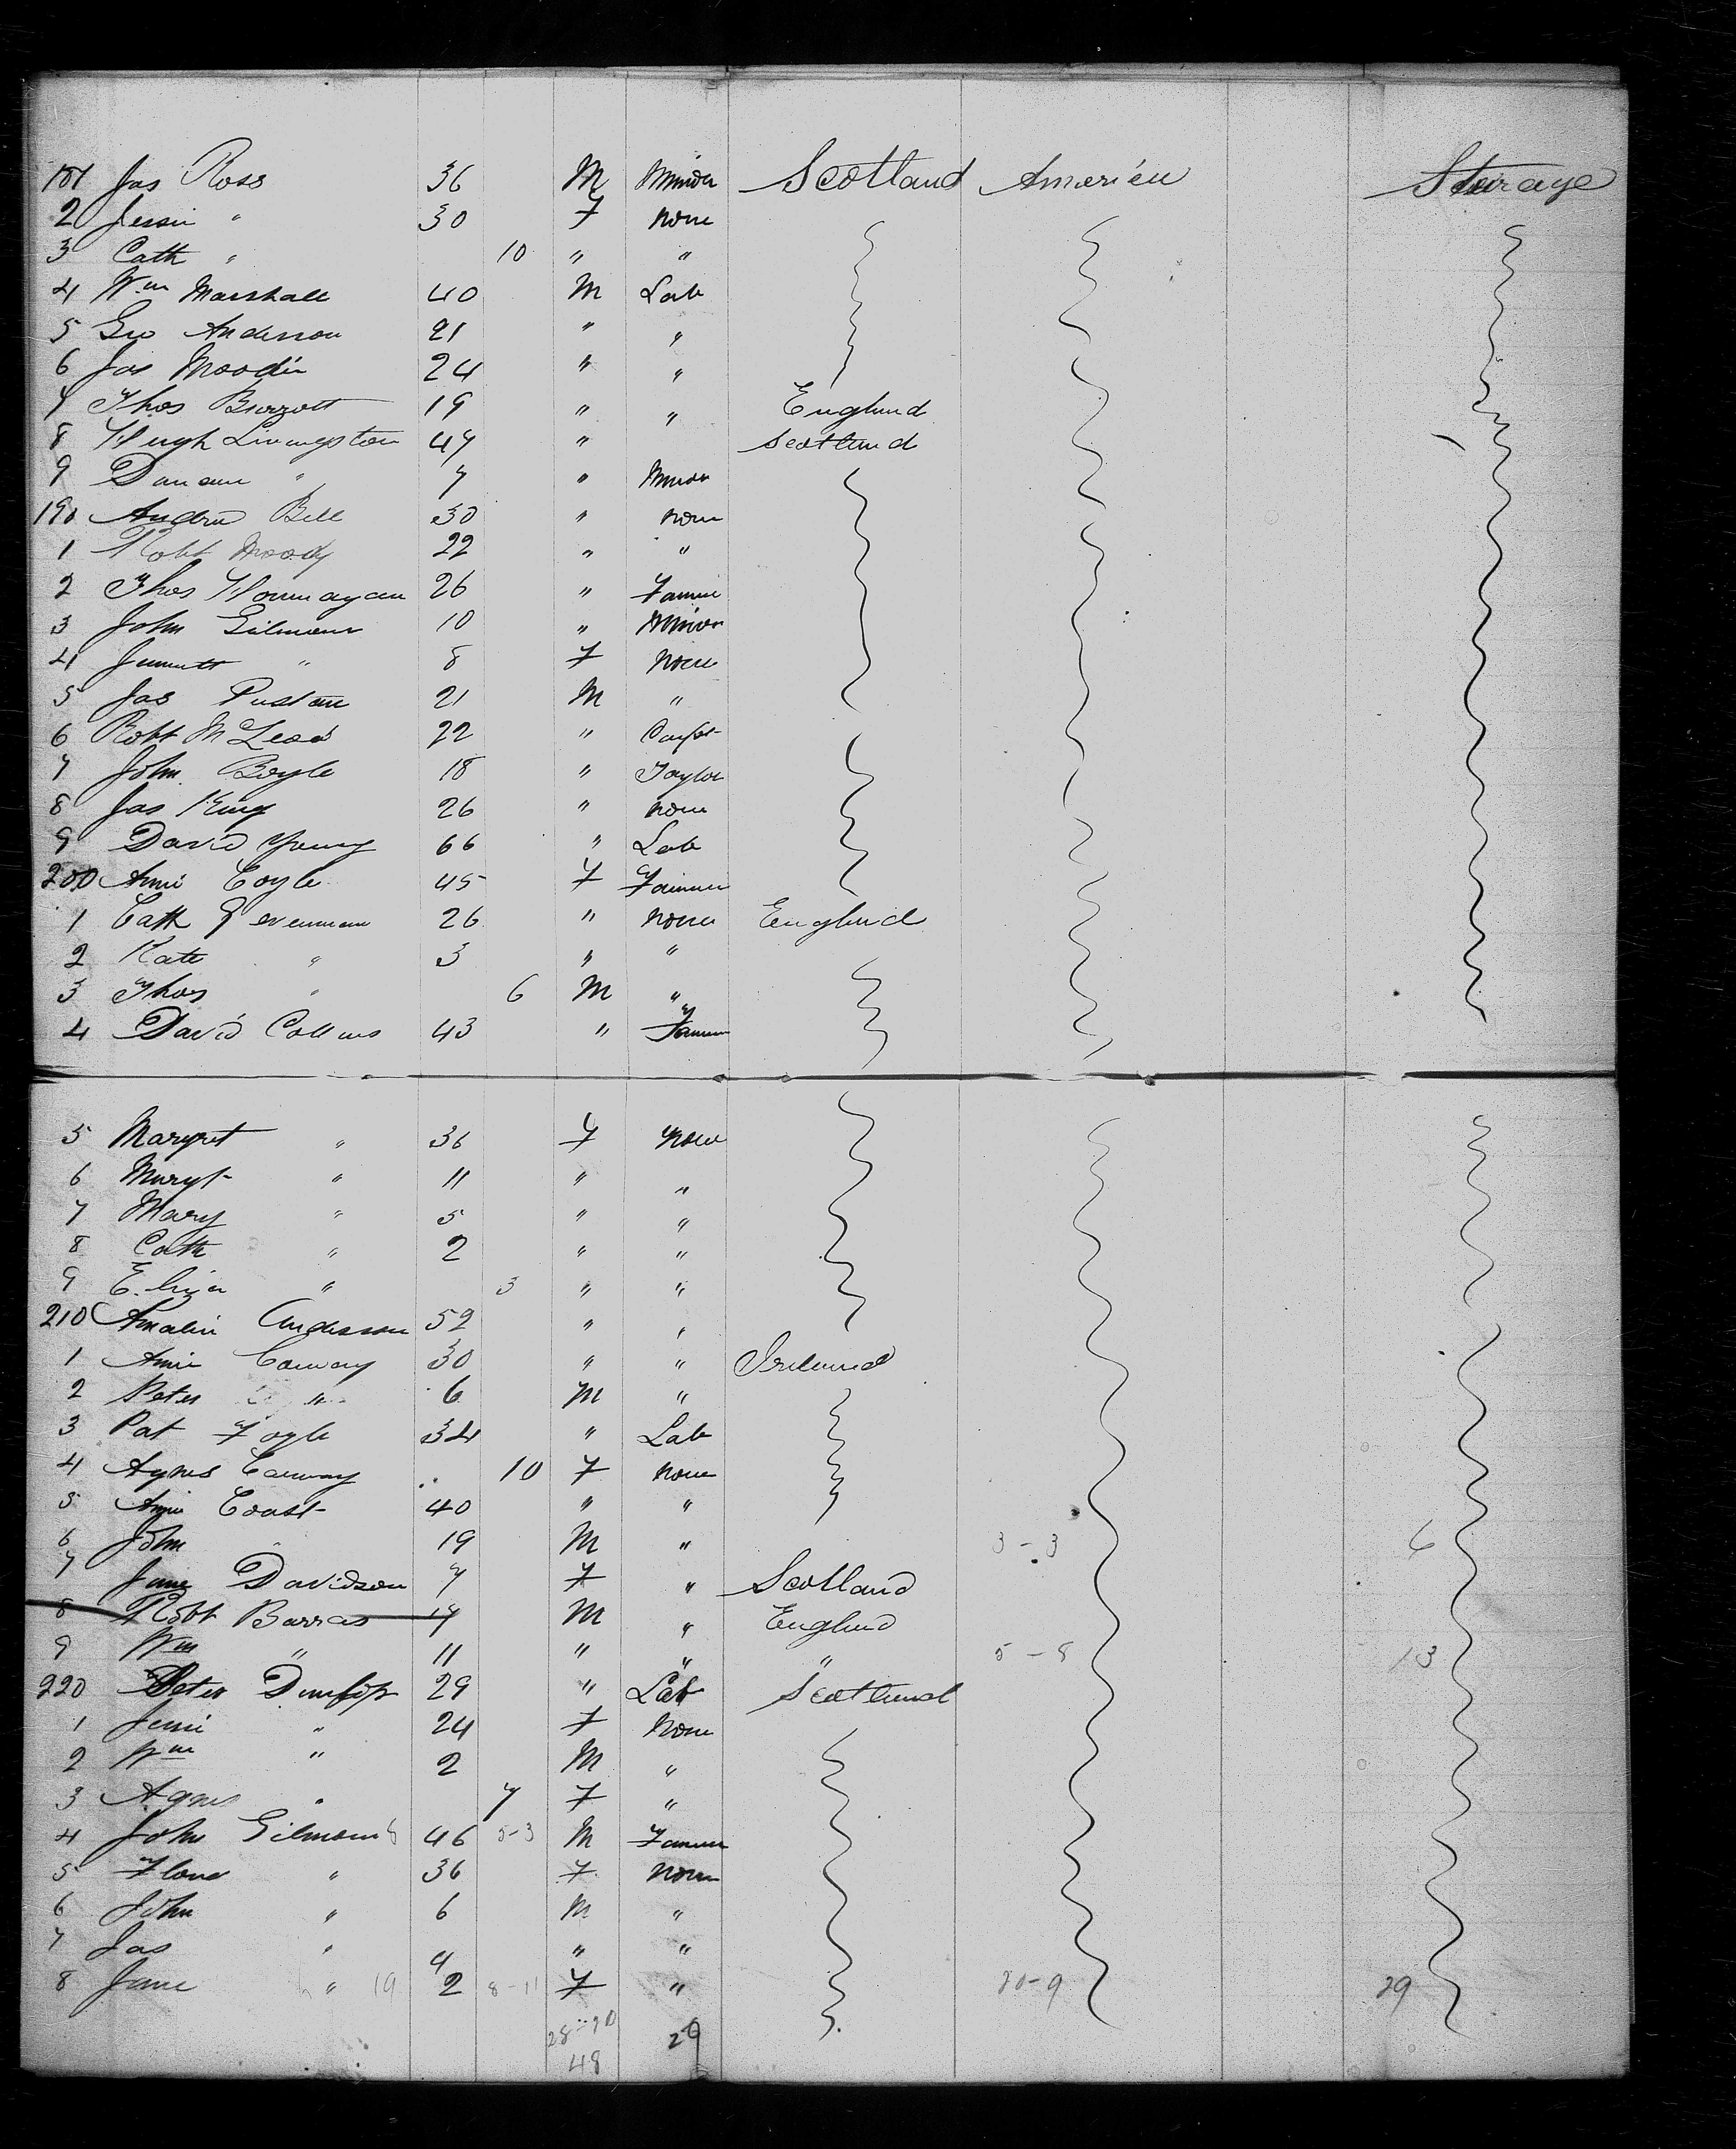 181 Jas Ross 36 M Minor Scotland America Sterage
2 Jessie " 30 F none
3 Cath " 10 " "
4 Wm Marshall 40 M Lab
5 Geo Anderson 21 " "
6 Jas Moodie 24 " "
7 Thos 19 " " England
8 Hugh Livingston 47 " Scotland
9 Duncan " 7 " Minor
190 Andrew Bell 30 " none
1 Robt Moody 22 " "
2 Thos 26 " Farmer
3 John Gilmour 10 " Minor
4 Jennett " 8 F none
5 Jas 21 M "
6 Robt McLeod 22 "
7 John Boyle 18 " Taylor
8 Jas King 26 " none
9 David Young 66 " Lab
200 Annie Coyle 45 F Farmer
1 Cath 26 " none England
2 Kate " 3 " "
3 Thos " 6 M "
4 David Collins 43 " Farmer
5 Margret " 36 F none
6 Margt " 11 " "
7 Mary " 5 " "
8 Cath " 2 " "
9 Eliza " 3 " "
210 Amalia Anderson 52 " "
1 Annie Conway 30 " " Ireland
2 Peter " 6 M "
3 Pat Foyle 34 " Lab
4 Agnes Conway 10 F none
5 Annie Coast 40 " "
6 John " 19 M " 3-3 6
7 Jane Davidson 7 F " Scotland
8 Robt Barras 17 M " England
9 Wm " 11 " " " 5-8 13
220 Peter Dunlop 29 " Lab Scotland
1 Jessie " 24 F None
2 Wm " 2 M "
3 Agnes " 7 F "
4 John Gilmour 46 5-3 M Farmer
5 Flora " 36 F None
6 John " 6 M "
7 Jas " 4 " "
8 Jane " 19 2 8-11 F " 20-9 29
28-20 29
48